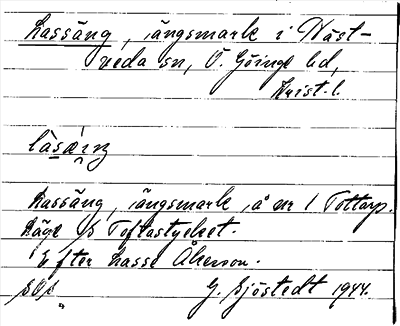 Lassäng, ängsmark i Näst-
veda sn, Ö. Göinge hd,
Krist. l.
làsäiŋ
Lassäng, ängsmark, å nr 1 Tottarp.
Läge S Toftastycket.
Efter Lasse Åkesson.
G. Sjöstedt 1944.